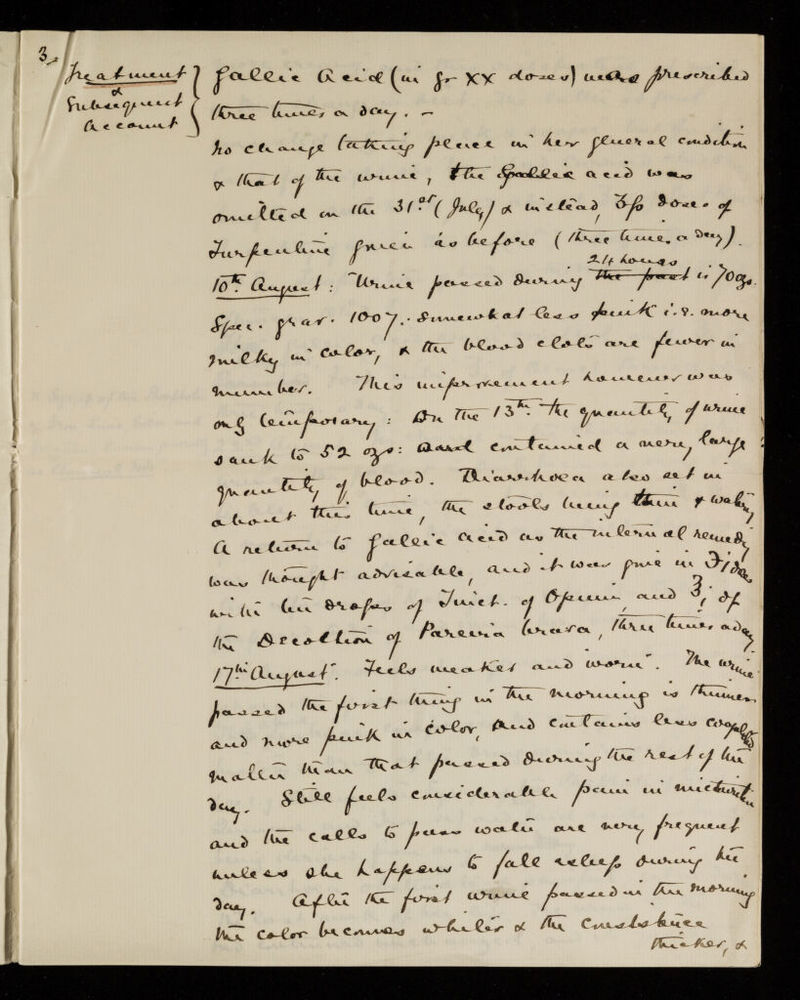 3.
Treatment
&
Subsequent
Account
Gallic Acid (in gr XX doses) was prescribed
three times a day. -
No change taking place in her general condition
& that of the urine, the Gallic acid was
omitted on the 31st (July) & instead, doses of
Turpentine given as before (three times a day).
24 hours
10th August: Urine passed during the past is 70 ozs.
Spec. grav. 1007. Somewhat less pink i.e. more
milky in color, & the blood clots are fewer in
number. This improvement however was
only temporary: On the 13th the quantity of urine
sank to 52 ozs: and contained a very large
quantity of blood. Diarrhoea also set in
about this time, the stools being thin & watery
A return to Gallic acid as the internal remedy
was thought advisable, and it was give in
with ten drops of Tinct. of Opium, and ℥i of
the Decoction of Pareira brava, three times a day
17th August. Feels weaker and worn. The urine
passed the first thing in the morning is thinner
and more pink in color, and contains less coagulated
matter than that passed during the rest of the
day. Still feels considerable pain in micturition
and the calls to pass water are very frequent
unless she happens to fall asleep during the
day. After the first urine passed in the morning
the color becomes whiter & the consistence
thicker, &